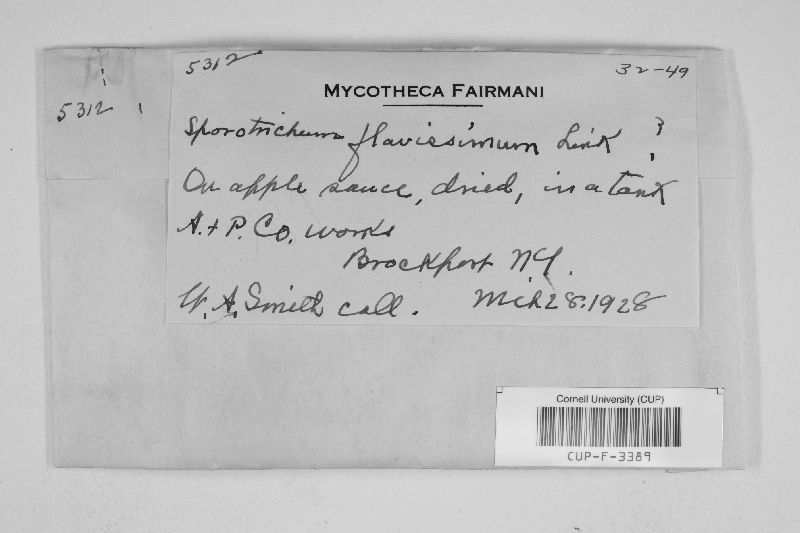 5312
32-49
MYCOTHECA FAIRMANI
5312
Sporotrichum flavissimum Link ?
On apple sauce, dried, in a tank
A. + P. Co. works
Brockport N.Y.
W. A. Smith coll. Mch 28. 1928
Cornell University (CUP)
CUP-F-3389